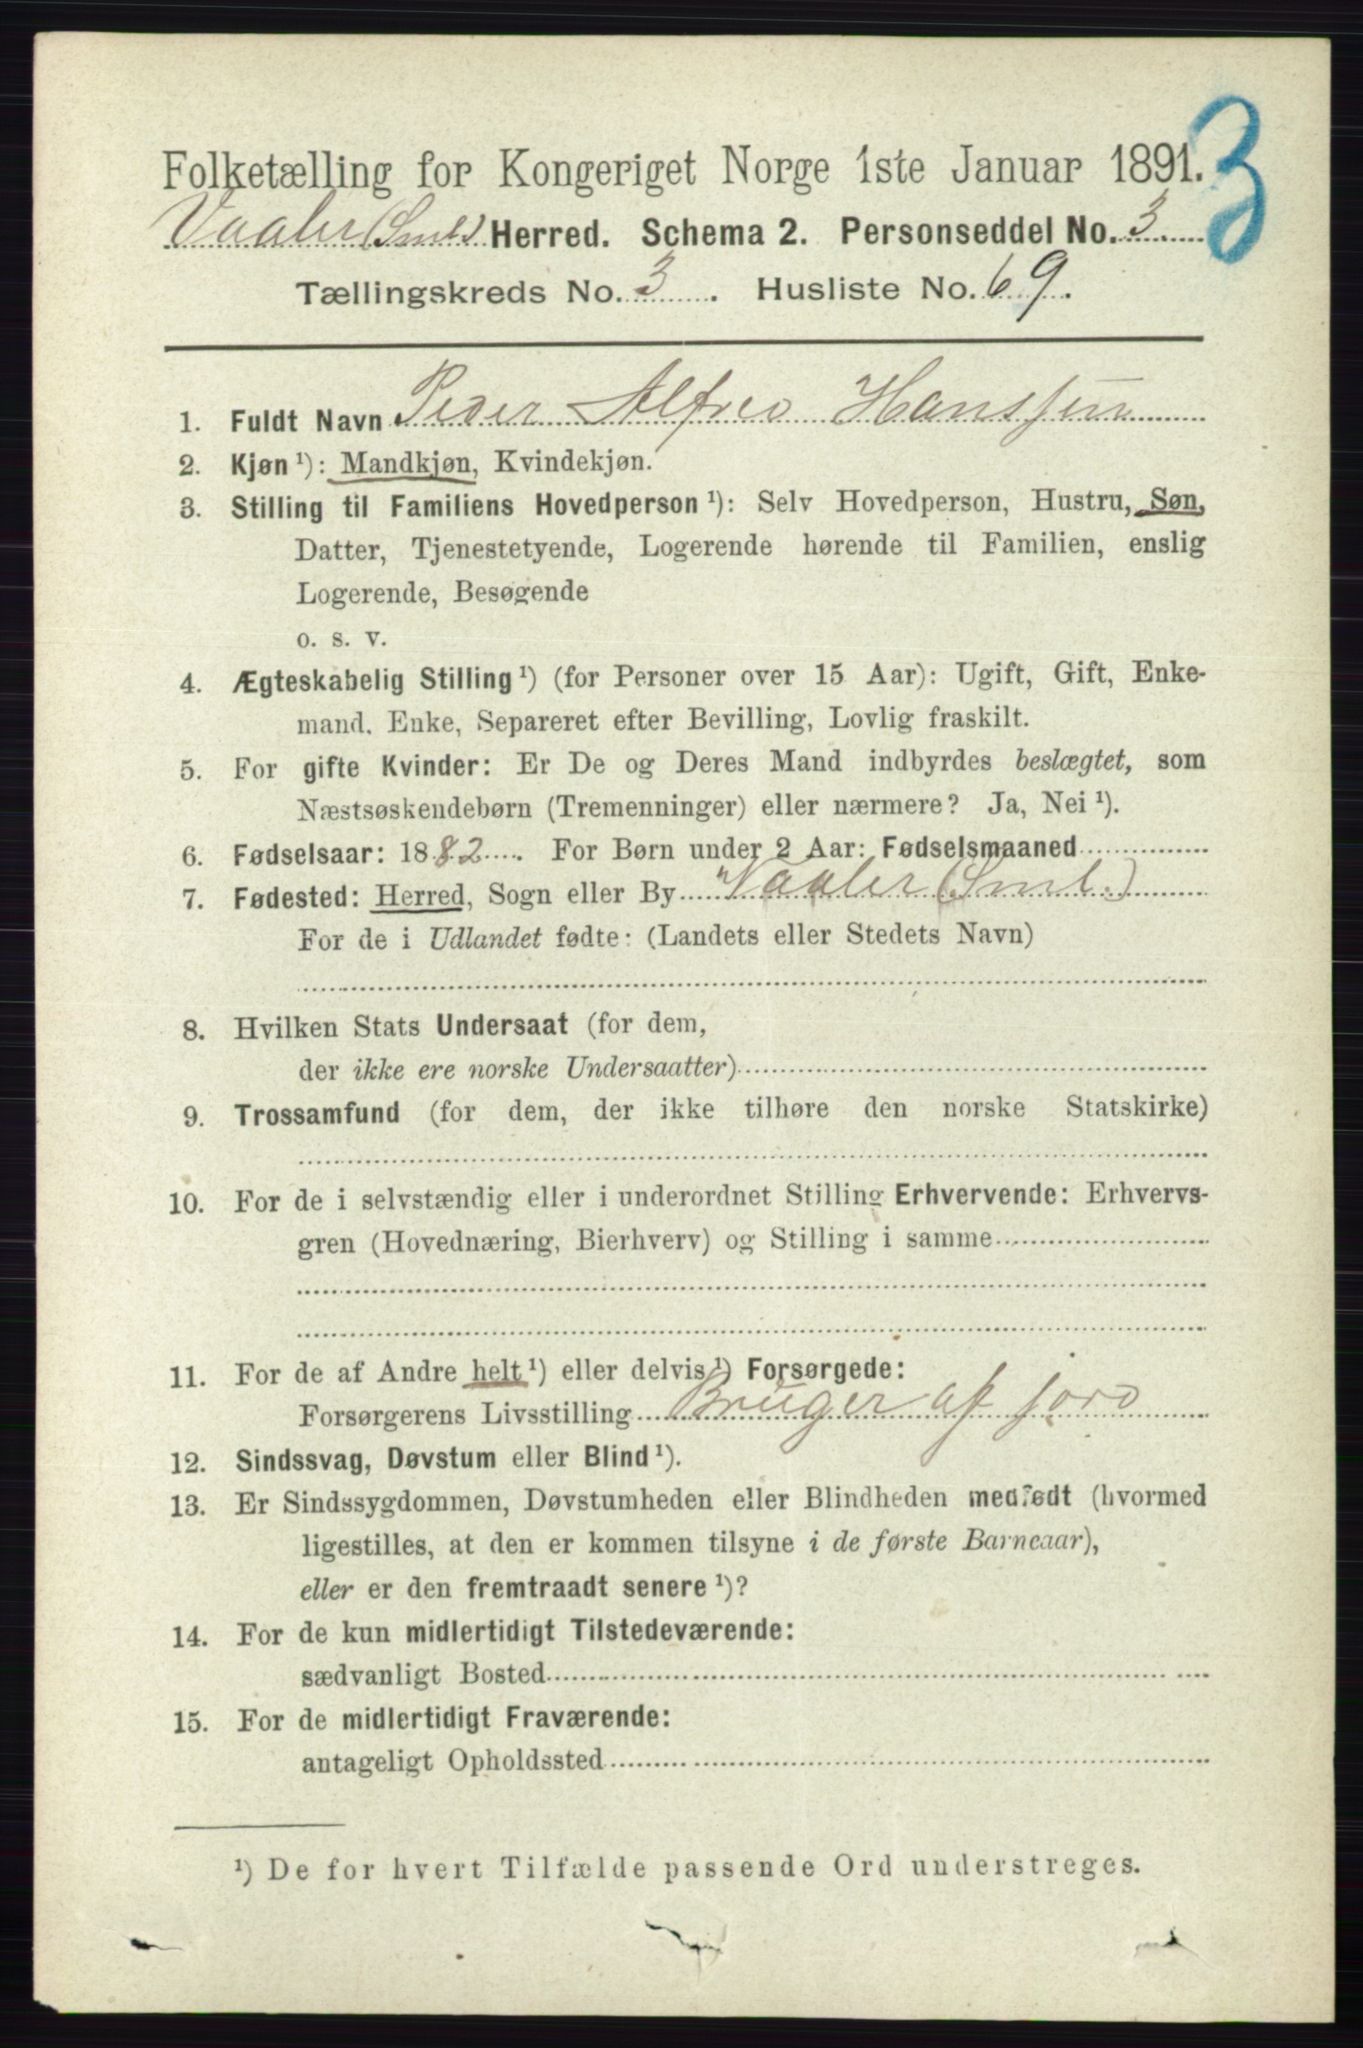 3
Folketælling for Kongeriget Norge 1ste Januar 1891.
Vaaler (Smls) Herred. Schema 2. Personseddel No. 3.
Tællingskreds No. 3. Husliste No. 69.
1. Fuldt Navn Peder Alfred Hanssen
2. Kjøn ¹): Mandkjøn, Kvindekjøn.
3. Stilling til Familiens Hovedperson ¹): Selv Hovedperson, Hustru, Søn,
Datter, Tjenestetyende, Logerende hørende til Familien, enslig
Logerende, Besøgende
o. s. v.
4. Ægteskabelig Stilling ¹) (for Personer over 15 Aar): Ugift, Gift, Enke-
mand, Enke, Separeret efter Bevilling, Lovlig fraskilt.
5. For gifte Kvinder: Er De og Deres Mand indbyrdes beslægtet, som
Næstsøskendebørn (Tremenninger) eller nærmere? Ja, Nei ¹).
6. Fødselsaar: 1882. For Børn under 2 Aar: Fødselsmaaned
7. Fødested: Herred, Sogn eller By Vaaler (Sml.)
For de i Udlandet fødte: (Landets eller Stedets Navn)
8. Hvilken Stats Undersaat (for dem,
der ikke ere norske Undersaatter)
9. Trossamfund (for dem, der ikke tilhøre den norske Statskirke)
10. For de i selvstændig eller i underordnet Stilling Erhvervende: Erhvervs-
gren (Hovednæring, Bierhverv) og Stilling i samme
11. For de af Andre helt ¹) eller delvis ¹) Forsørgede:
Forsørgerens Livsstilling Bruger af jord
12. Sindssvag, Døvstum eller Blind ¹).
13. Er Sindssygdommen, Døvstumheden eller Blindheden medfødt (hvormed
ligestilles, at den er kommen tilsyne i de første Barneaar),
eller er den fremtraadt senere ¹)?
14. For de kun midlertidigt Tilstedeværende:
sædvanligt Bosted
15. For de midlertidigt Fraværende:
antageligt Opholdssted
¹) De for hvert Tilfælde passende Ord understreges.